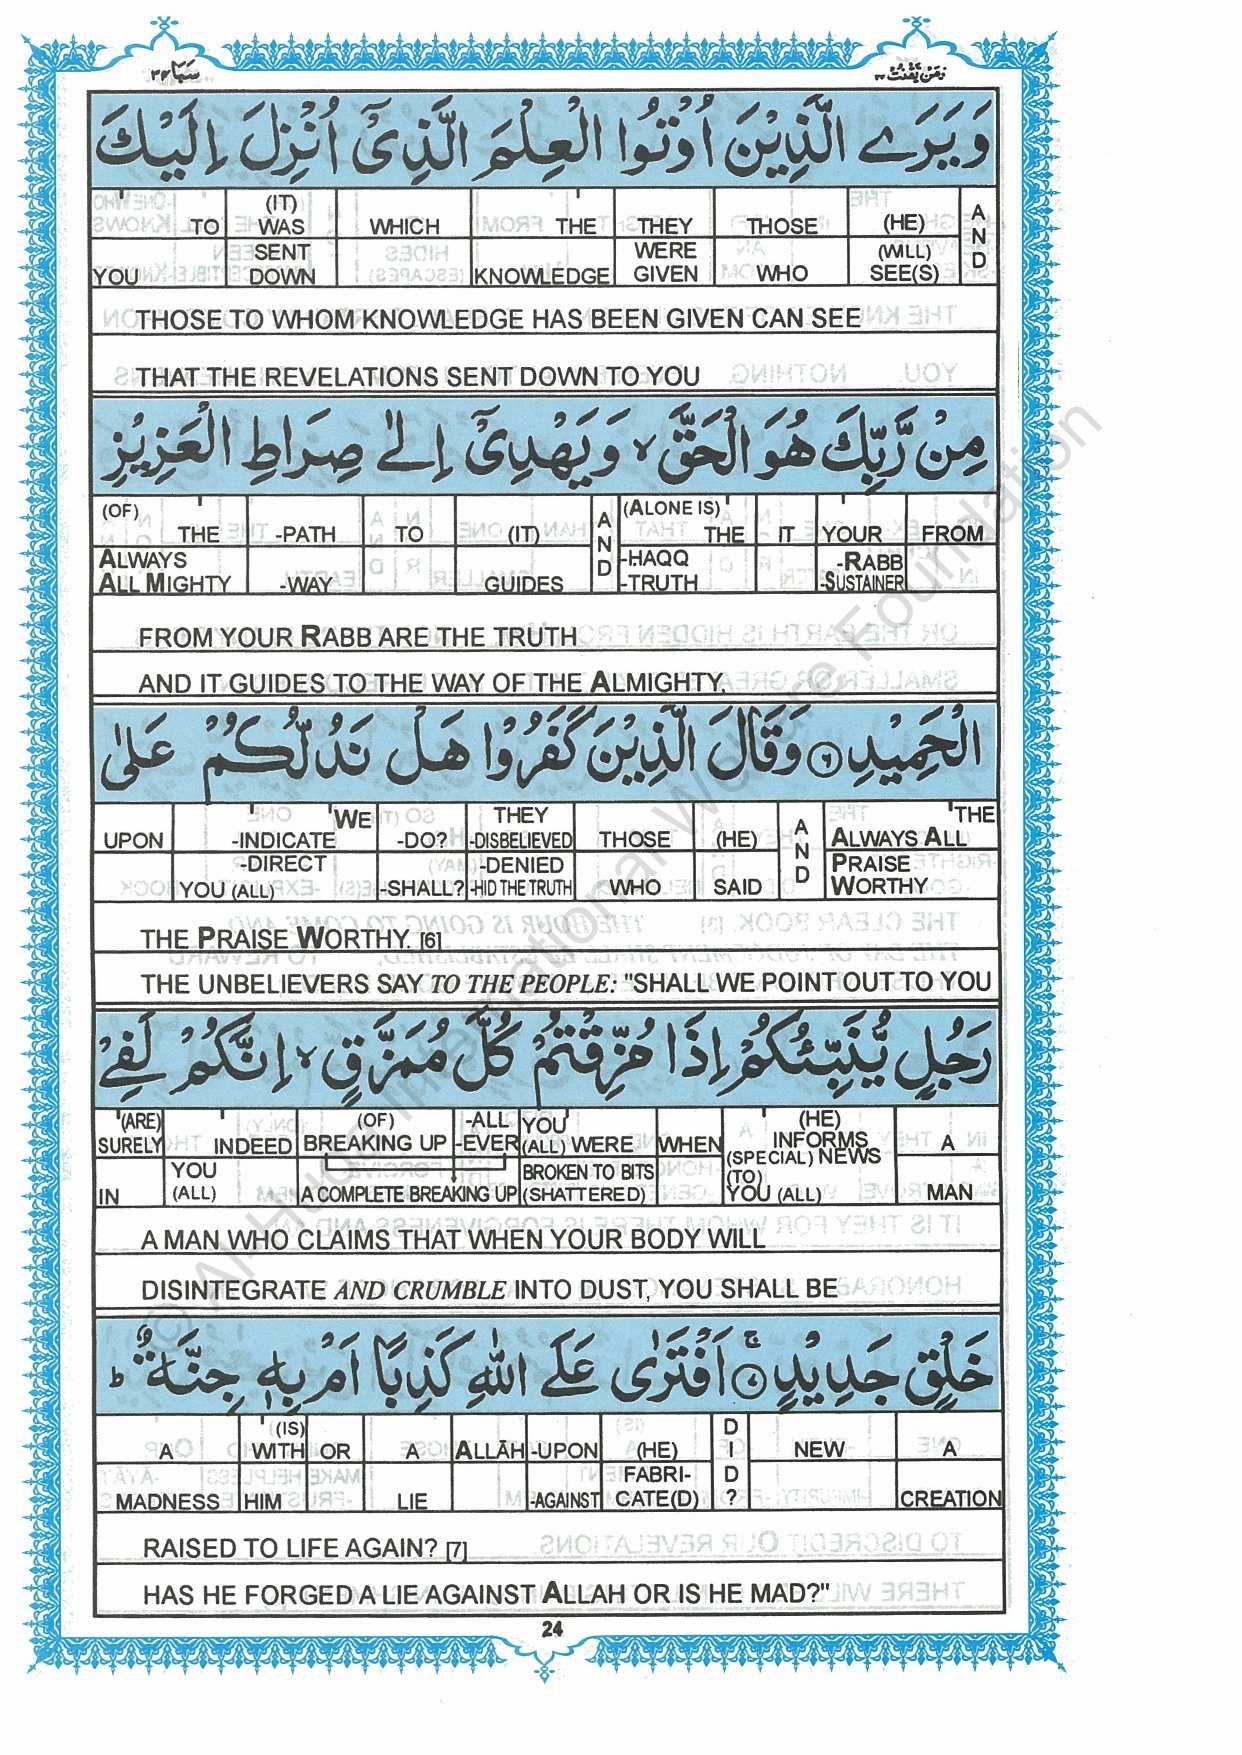 سَبَا ٣٤
وَمَنْ يَّقْنُتْ ٢٢
وَ يَرَى الَّذِيْنَ اُوْتُوا الْعِلْمَ الَّذِيْٓ اُنْزِلَ اِلَيْكَ
TO (IT) WAS WHICH THE THEY THOSE (HE) AND
YOU SENT DOWN KNOWLEDGE WERE GIVEN WHO (WILL) SEE(S)
THOSE TO WHOM KNOWLEDGE HAS BEEN GIVEN CAN SEE
THAT THE REVELATIONS SENT DOWN TO YOU
مِنْ رَّبِّكَ هُوَ الْحَقَّ ۙ وَ يَهْدِيْٓ اِلٰى صِرَاطِ الْعَزِيْزِ
(OF) THE -PATH TO (IT) AND (ALONE IS) THE IT YOUR FROM
ALWAYS ALL MIGHTY -WAY GUIDES -HAQQ -TRUTH -RABB -SUSTAINER
FROM YOUR RABB ARE THE TRUTH
AND IT GUIDES TO THE WAY OF THE ALMIGHTY,
الْحَمِيْدِ ٦ وَقَالَ الَّذِيْنَ كَفَرُوْا هَلْ نَدُلُّكُمْ عَلٰى
UPON -INDICATE WE -DO? THEY -DISBELIEVED THOSE (HE) AND THE ALWAYS ALL
-DIRECT YOU (ALL) -SHALL? -DENIED -HID THE TRUTH WHO SAID PRAISE WORTHY
THE PRAISE WORTHY. [6]
THE UNBELIEVERS SAY TO THE PEOPLE: "SHALL WE POINT OUT TO YOU
رَجُلٍ يُّنَبِّئُكُمْ اِذَا مُزِّقْتُمْ كُلَّ مُمَزَّقٍ ۙ اِنَّكُمْ لَفِيْ
(ARE) SURELY INDEED (OF) BREAKING UP -ALL -EVER YOU (ALL) WERE WHEN (HE) INFORMS (SPECIAL) NEWS A
IN YOU (ALL) A COMPLETE BREAKING UP BROKEN TO BITS (SHATTERED) (TO) YOU (ALL) MAN
A MAN WHO CLAIMS THAT WHEN YOUR BODY WILL
DISINTEGRATE AND CRUMBLE INTO DUST, YOU SHALL BE
خَلْقٍ جَدِيْدٍ ٧ ۚ اَفْتَرٰى عَلَى اللّٰهِ كَذِبًا اَمْ بِهٖ جِنَّةٌ ؕ
A (IS) WITH OR A ALLĀH -UPON (HE) DID? NEW A
MADNESS HIM LIE -AGAINST FABRI-CATE(D) CREATION
RAISED TO LIFE AGAIN? [7]
HAS HE FORGED A LIE AGAINST ALLAH OR IS HE MAD?"
24
© Al-Huda International Welfare Foundation